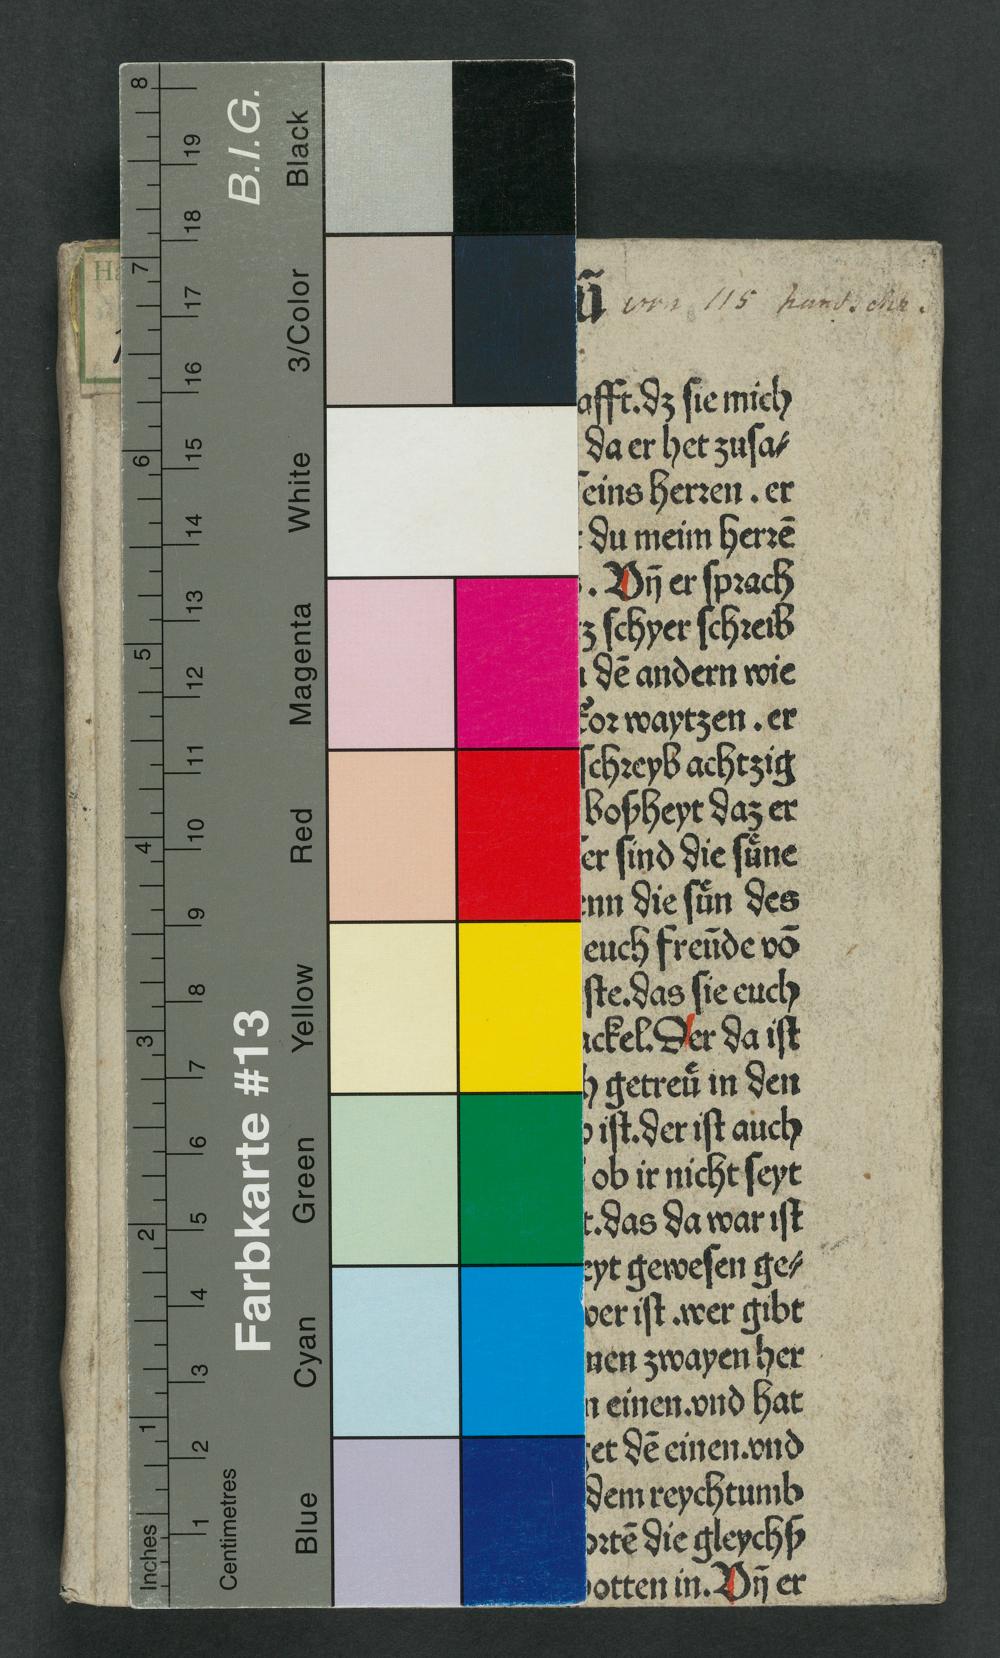 B.I.G.
Farbkarte #13
Black
3/Color
White
Magenta
Red
Yellow
Green
Cyan
Blue
Inches
1
2
3
4
5
6
7
8
Centimetres
1
2
3
4
5
6
7
8
9
10
11
12
13
14
15
16
17
18
19
Ha
ũ von 115
afft.dʒ ſie mich
da er het zuſa⸗
ſeins herꝛen . er
du meim herꝛē
. Vñ er ſpꝛach
ʒ ſchyer ſchꝛeib
dē andern wie
koꝛ waytzen . er
ſchꝛeyb achtzig
boſzheyt daz er
er ſind die ſuͤne
enn die ſuͤn des
euch freũde vō
ſte.das ſie euch
ackel. Der da iſt
h getreuͤ in den
iſt.der iſt auch
ob ir nicht ſeyt
t.das da war iſt
eyt geweſen ge⸗
wer iſt .wer gibt
nen zwayen her
n einen.vnd hat
et dē einen.vnd
dem reychtumb
oꝛtē die gleychſz
otten in. Vñ er